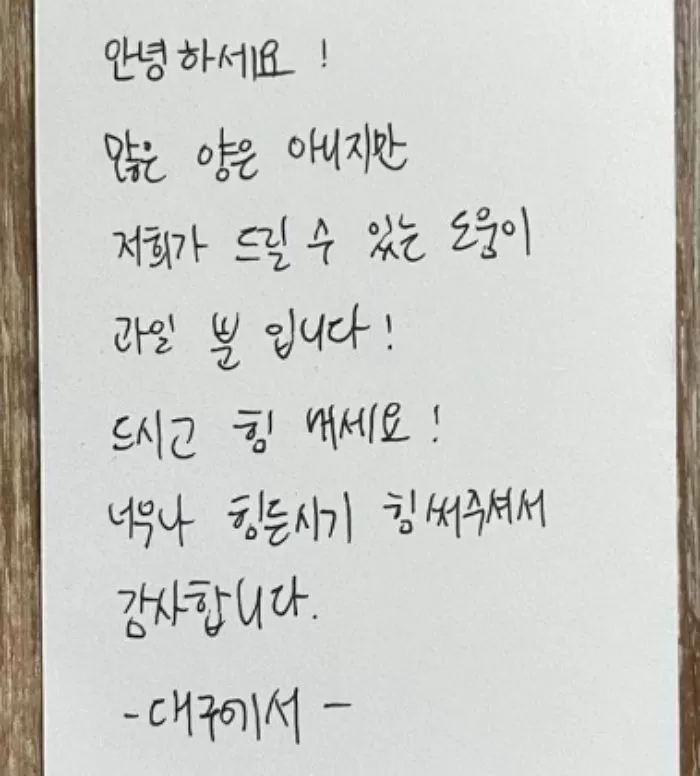 안녕하세요 !
많은 양은 아니지만
저희가 드릴 수 있는 도움이
과일 뿐 입니다 !
드시고 힘 내세요 !
너무나 힘든시기 힘써주셔서
감사합니다.
- 대구에서 -